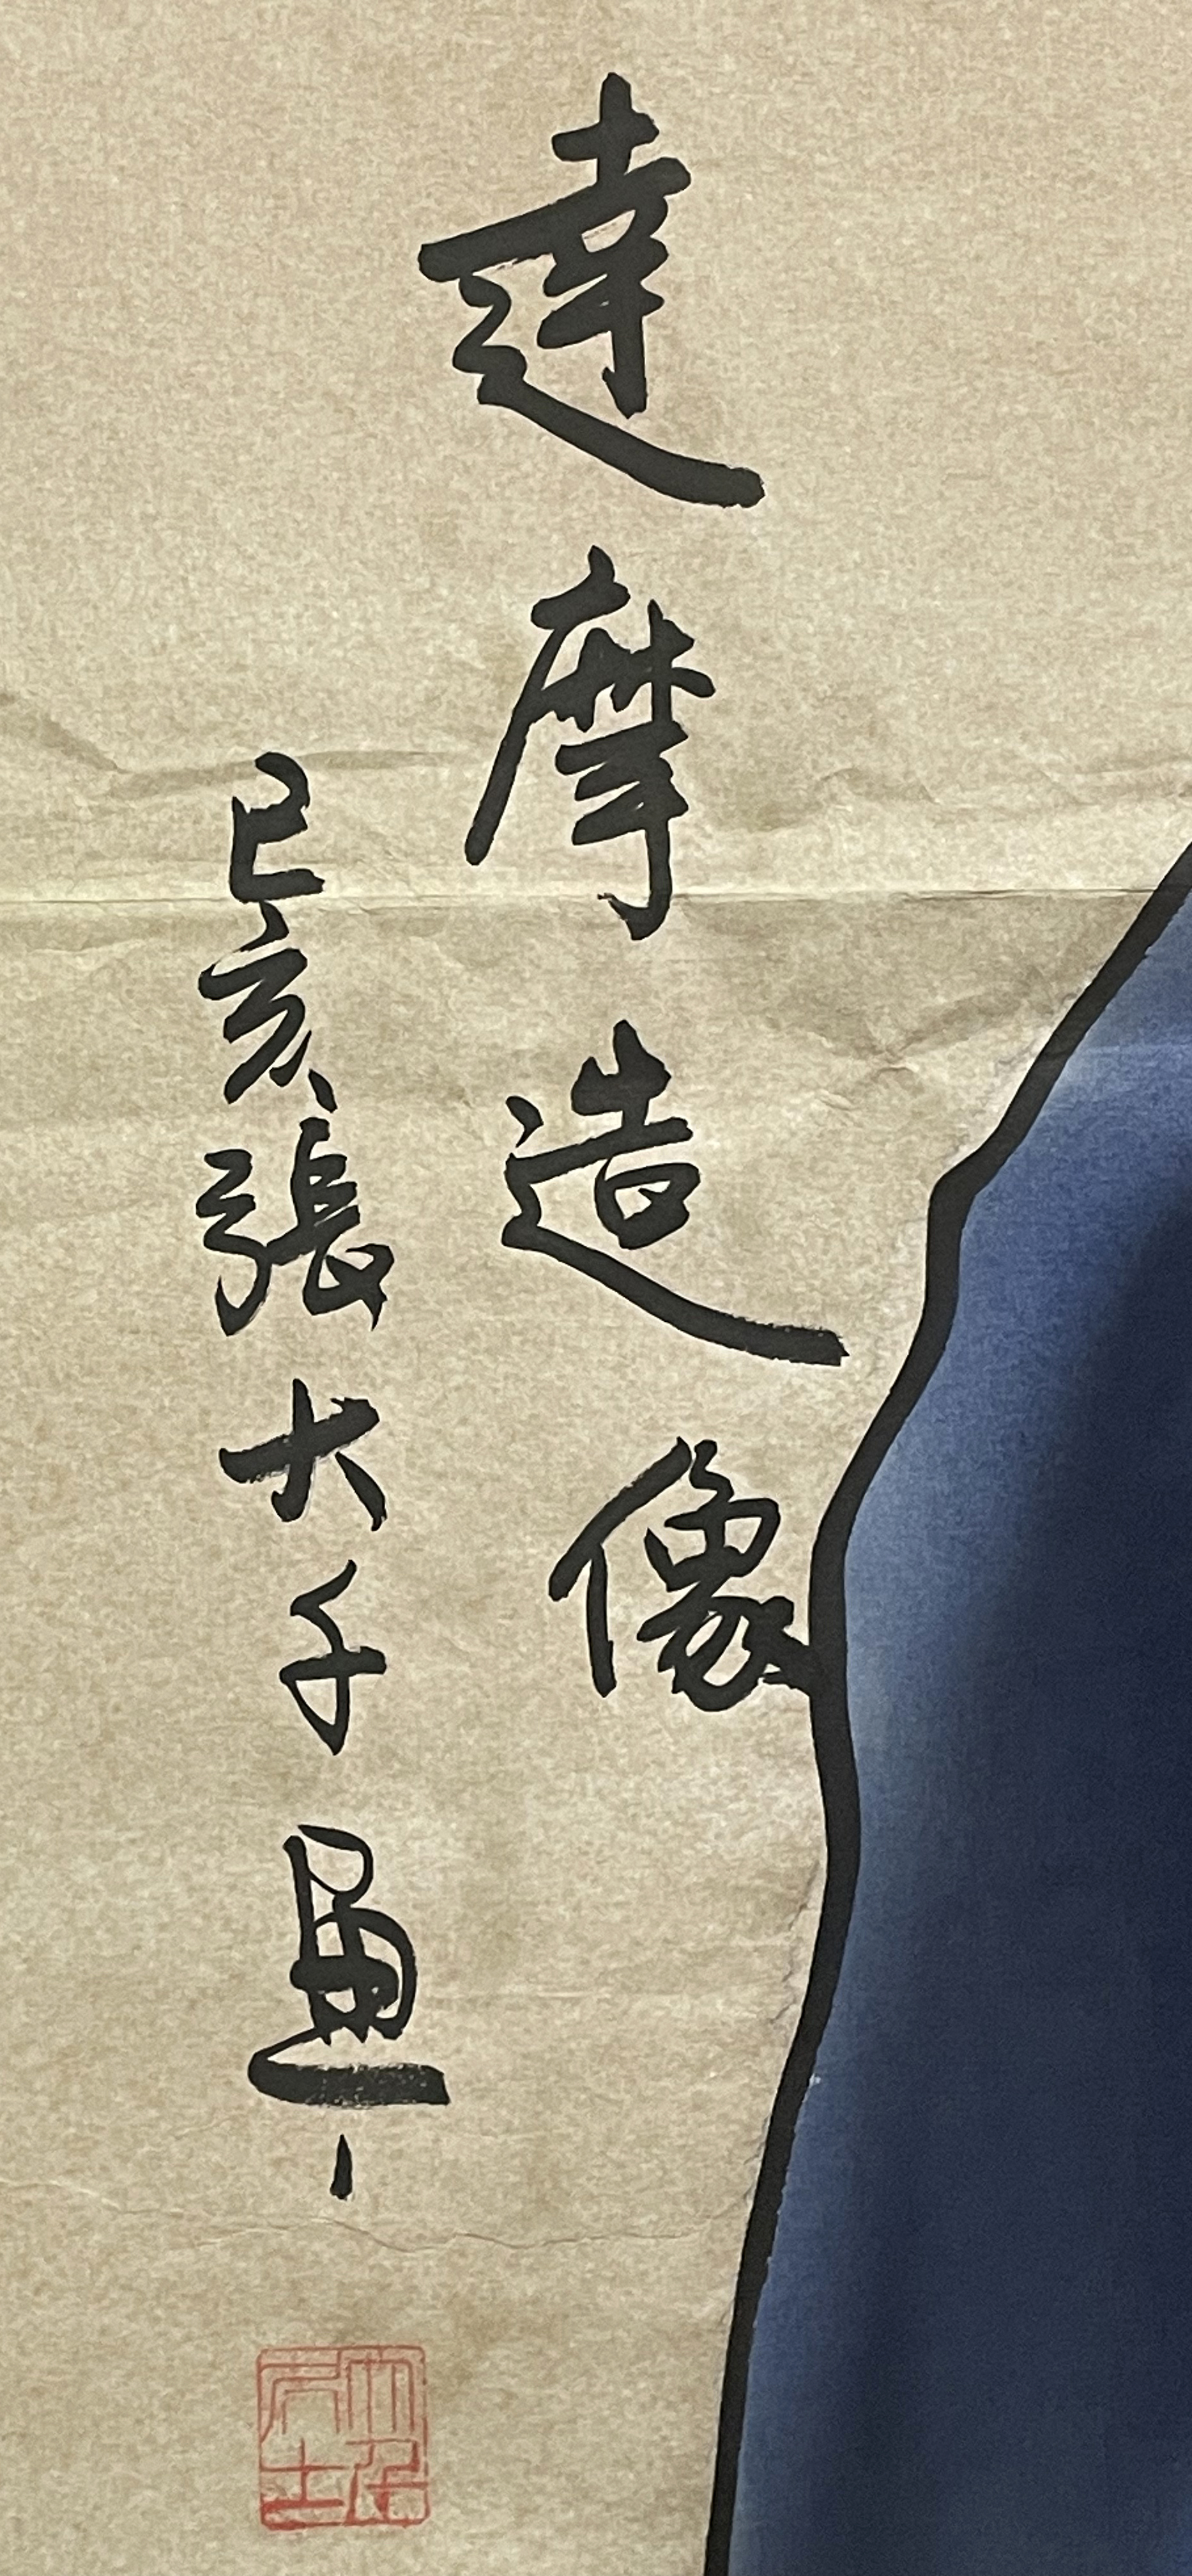 達摩造像
己亥張大千畫